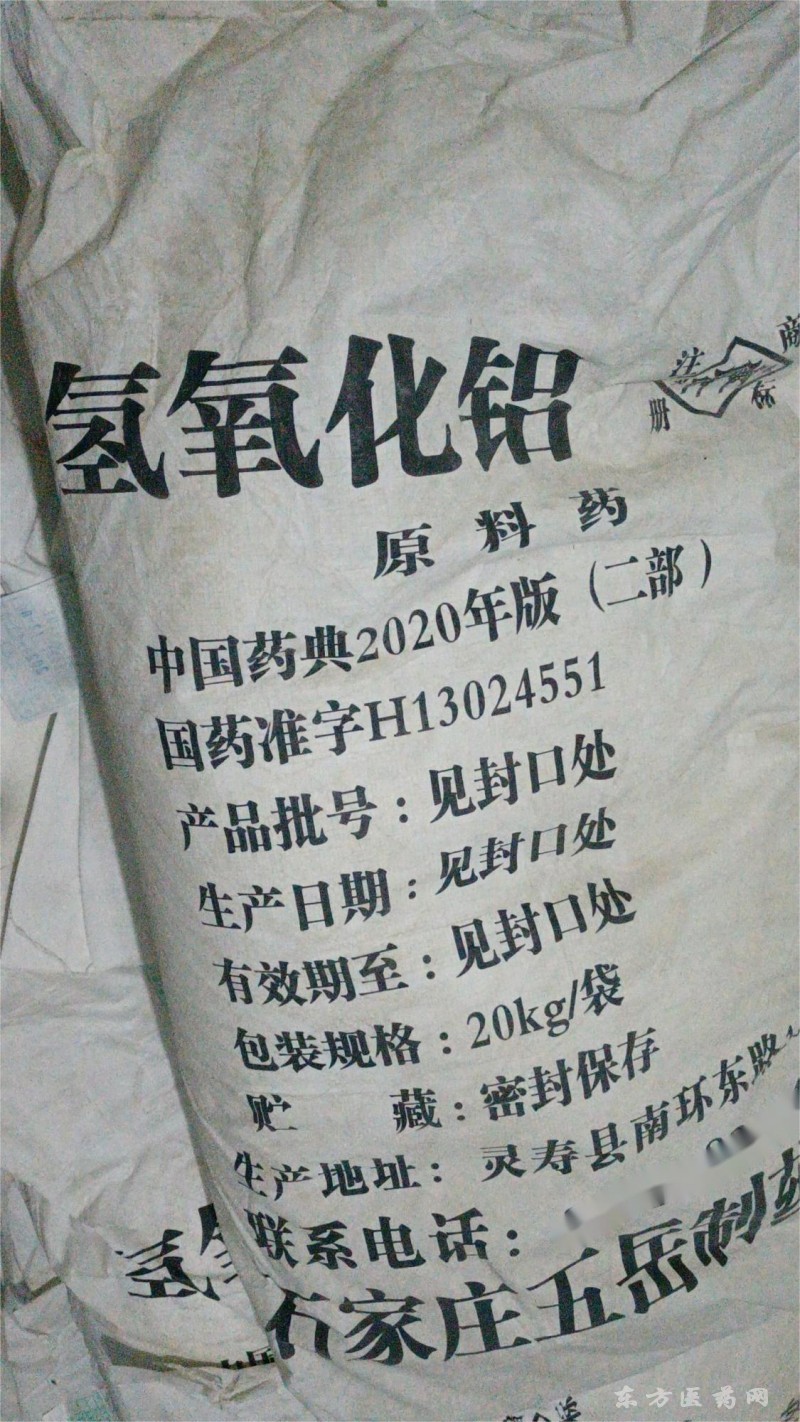 氢氧化铝
注册商标
原料药
中国药典2020年版（二部）
国药准字H13024551
产品批号：见封口处
生产日期：见封口处
有效期至：见封口处
包装规格：20kg/袋
贮 藏：密封保存
生产地址：灵寿县南环东路
联系电话：
石家庄五岳制药
氢氧
东方医药网